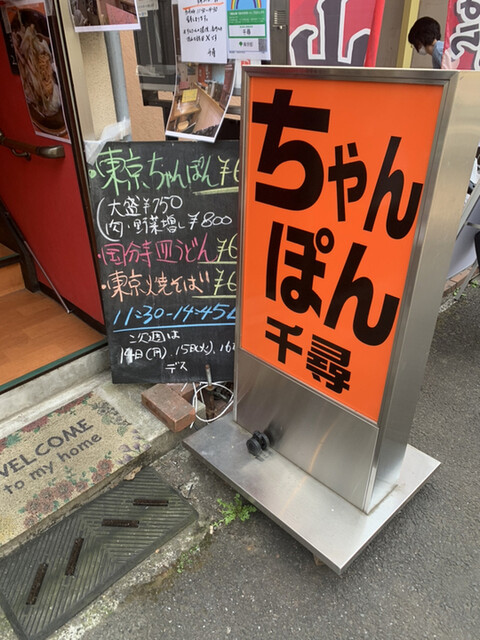 ちゃん
ぽん
千尋
・東京ちゃんぽん ¥6
(大盛¥750
肉・野菜増し¥800
・国分寺皿うどん ¥6
・東京焼そば ¥6
11:30-14:45L
次週は
14日(月)、15日(火)、16
デス
WELCOME
to my home